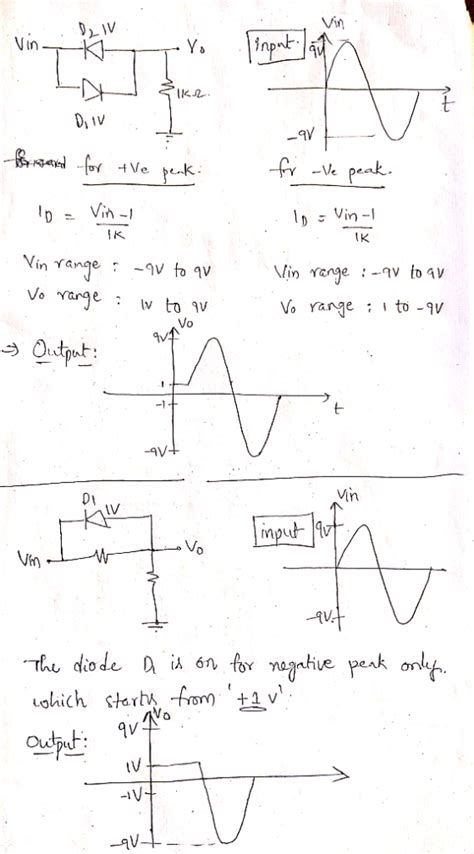 Vin
D2 1V
Vo
1KΩ
D1 1V
input
Vin
9V
-9V
t
for +Ve peak.
for -Ve peak.
ID = Vin-1
1K
ID = Vin-1
1K
Vin range : -9V to 9V
Vin range : -9V to 9V
Vo range : 1V to 9V
Vo range : 1 to -9V
→ Output:
Vo
9V
1
-1
-9V
t
D1
1V
Vin
Vo
input
Vin
9V
-9V
The diode D1 is on for negative peak only.
which starts from '+1 V'
Output:
Vo
9V
1V
-1V
-9V